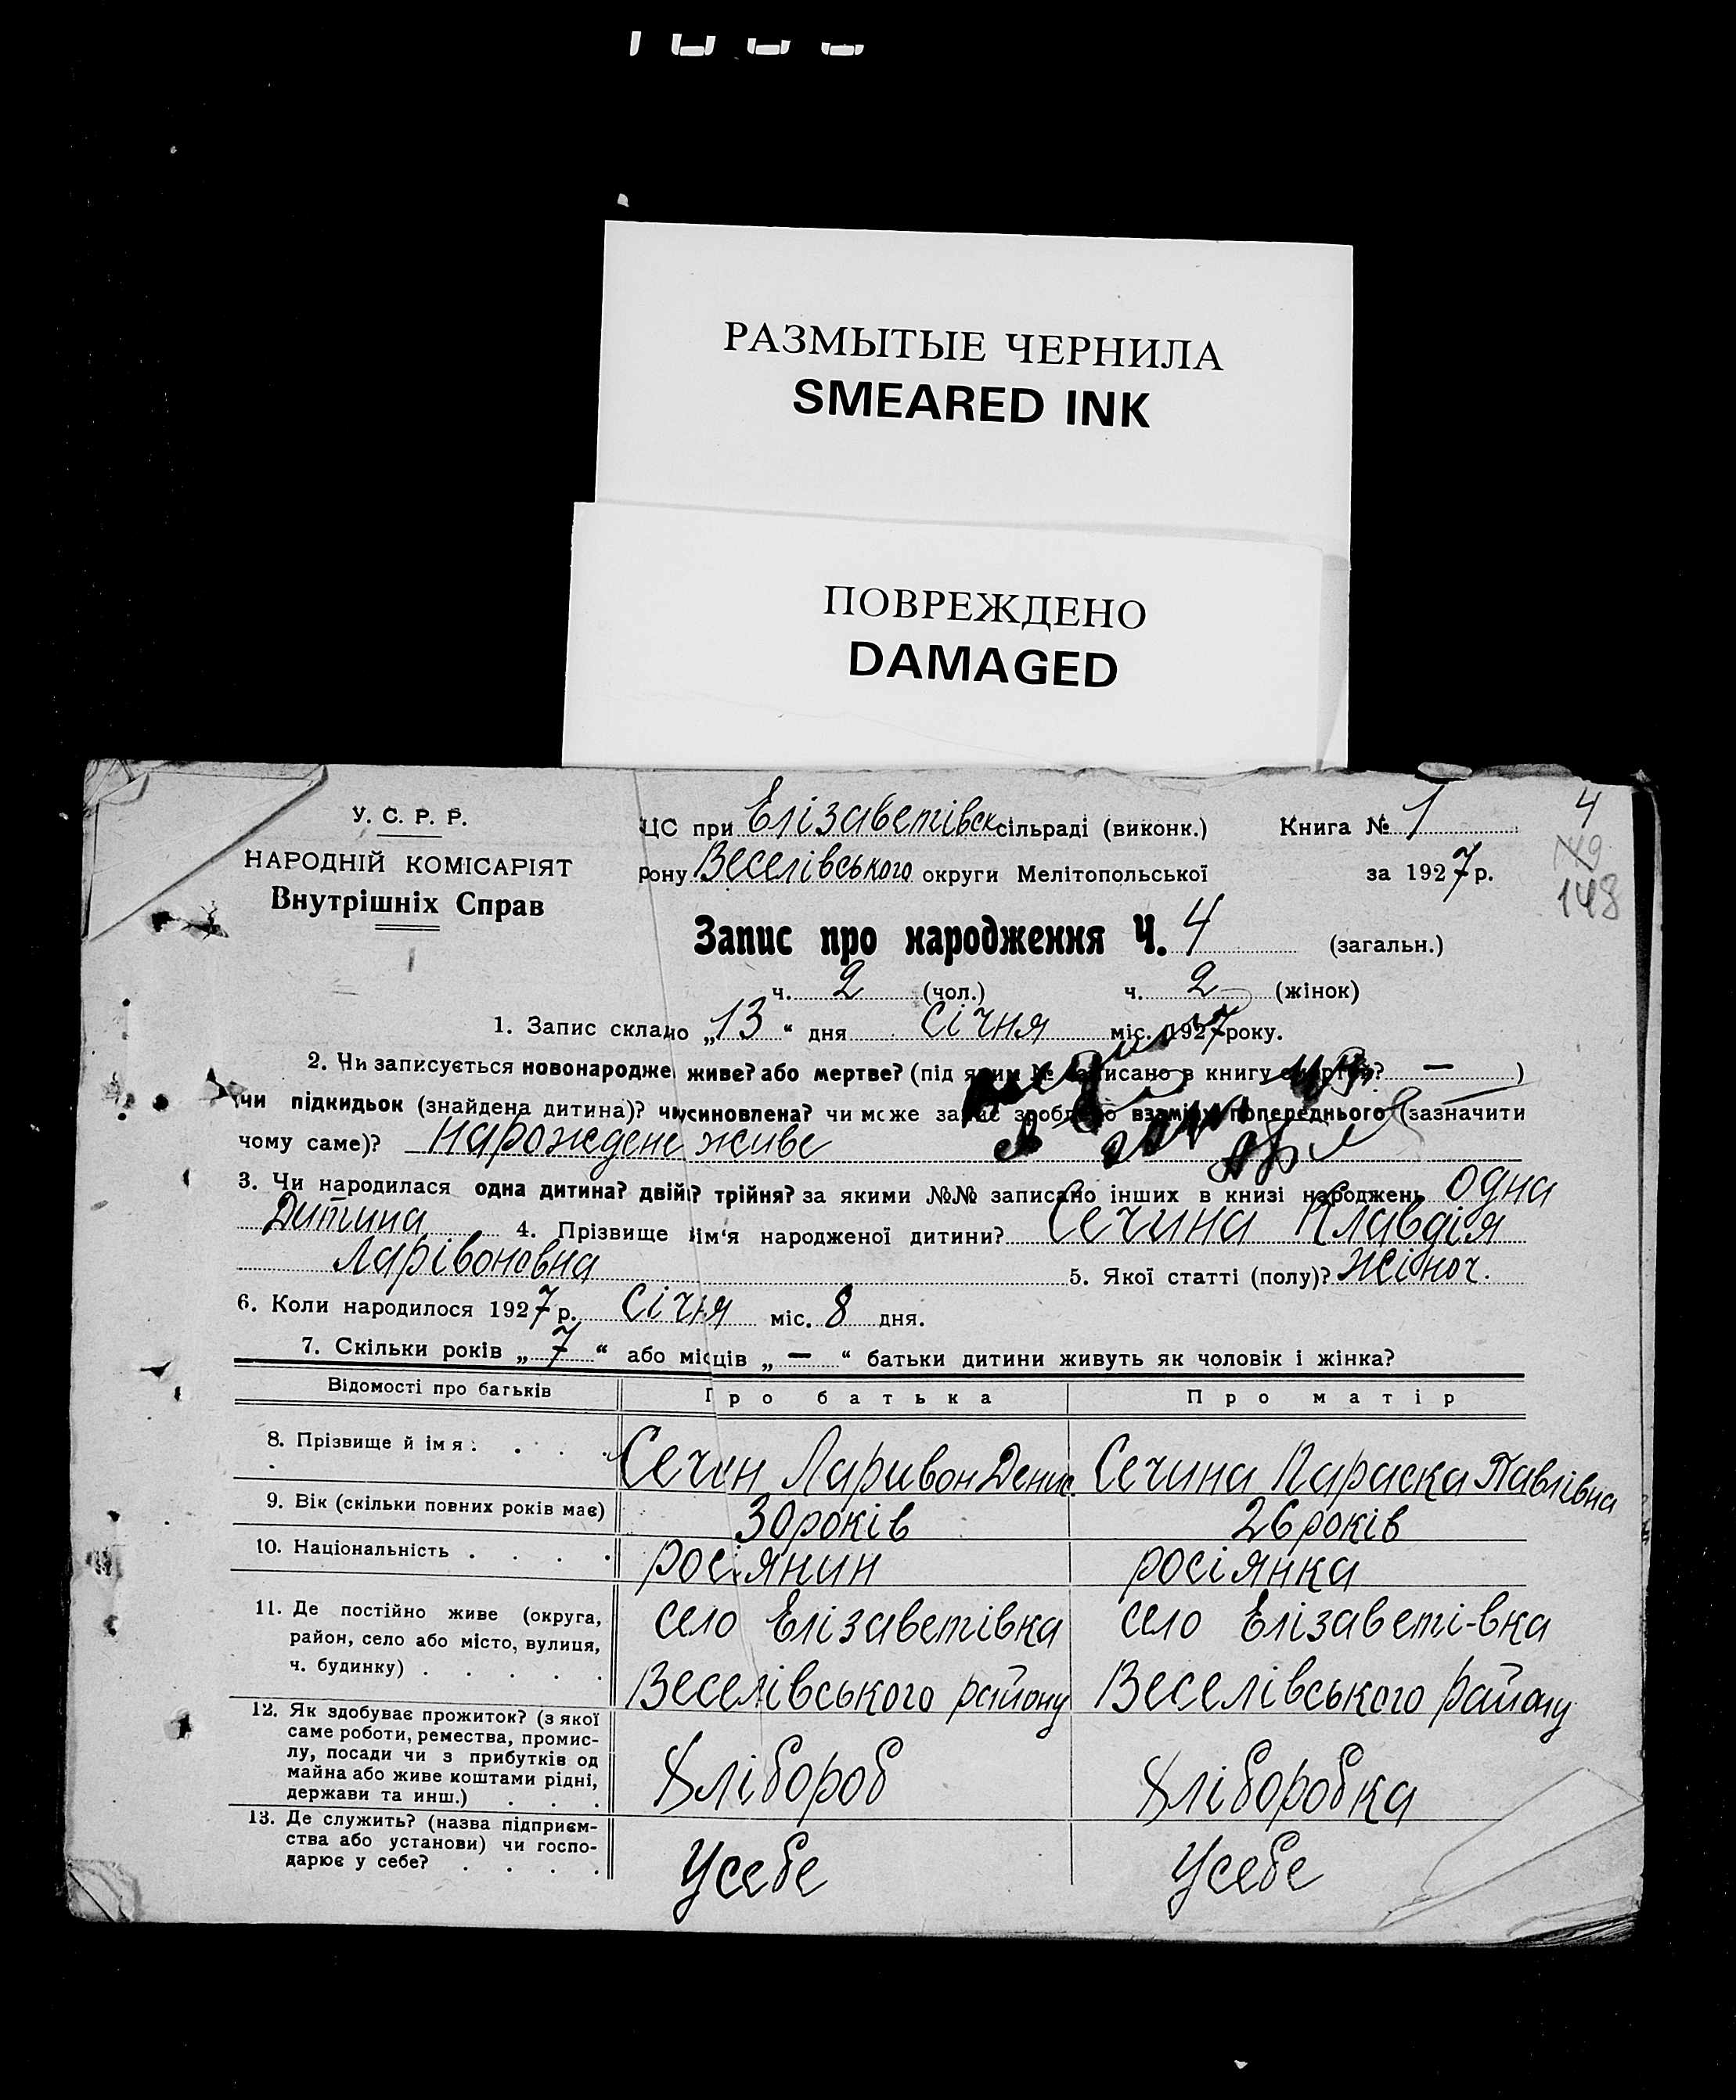 РАЗМЫТЫЕ ЧЕРНИЛА
SMEARED INK
ПОВРЕЖДЕНО
DAMAGED
У. С. Р. Р.
НАРОДНІЙ КОМІСАРІЯТ
Внутрішніх Справ
ЦС при Елізаветівск сільраді (виконк.) Книга № 1
4
рону Веселівського округи Мелітопольської за 1927 р.
148
Запис про народження Ч. 4 (загальн.)
ч. 2 (чол.) ч. 2 (жінок)
1. Запис складо „13“ дня січня міс. 1927 року.
2. Чи записується новонародже живе? або мертве? (під яким № записано в книгу смертів? — )
чи підкидьок (знайдена дитина)? чи усиновлена? чи може запис зроблено взамін попереднього (зазначити
чому саме)? нарождене живе
3. Чи народилася одна дитина? двійі? трійня? за якими №№ записано інших в книзі народжень одна
дитина 4. Прізвище ім‘я народженої дитини? Сечина Клавдія
Ларівоновна 5. Якої статті (полу)? жіноч.
6. Коли народилося 1927 р. Січня міс. 8 дня.
7. Скільки років „ 7 “ або місців „ — “ батьки дитини живуть як чоловік і жінка?
Відомості про батьків Про батька Про матір
8. Прізвище й імя: Сечин Ларивон Денис. Сечина Параска Павлівна
9. Вік (скільки повних років має) 30 років 26 років
10. Національність росіянин росіянка
11. Де постійно живе (округа, село Елізаветівка село Елізаветі-вка
район, село або місто, вулиця,
ч. будинку) Веселівського району Веселівського району
12. Як здобуває прожиток? (з якої
саме роботи, ремества, промис-
лу, посади чи з прибутків од Хлібороб Хліборобка
майна або живе коштами рідні,
держави та инш.)
13. Де служить? (назва підприєм-
ства або установи) чи госпо- Усебе Усебе
дарює у себе?